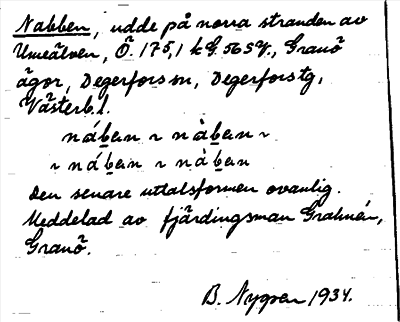 Nabben, udde på norra stranden av
Umeälven, Ö. 175,1 k G. 56 SY., Granö
ägor, Degerfors sn, Degerfors tg,
Västerb.l.
nában ~ nàban ~
~ nában ~ nàban
Den senare uttalsformen ovanlig.
Meddelad av fjärdingsman Grahnén,
Granö.
B. Nygren 1934.